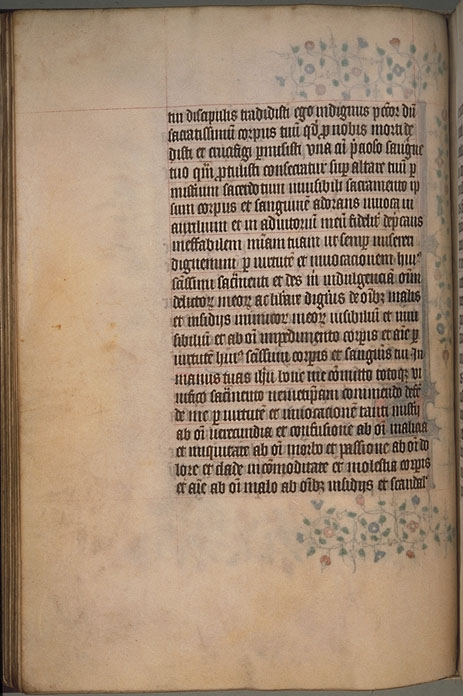 tuis discipulis tradidisti ego indignus peccor dñ
sacratissimū corpus tuū qd̓ p nobis morti de
disti et crucifigi pmisisti una cū p̄cioso sangue
tuo qm̄ ptulisti consecratur sup altare tuū p
misterium sacerdotum inuisibili sacramento ip
sum corpus et sanguinē adorans inuoco in
auxilium et in adiutoriū meū fideliť dep̄cans
ineffabilem miam̄ tuam ut semp miseren
digneminī p uirtutē et inuocationem huiꝰ
scissimi sacm̄enti et des m̄ indulgenciā oīm
delictoꝝ meoꝝ ac lib̓are digis de oībꝫ malis
et insidijs inimicoꝝ meoꝝ uisibiliū et inui
sibiliū et ab oī impedimento corpis et aīe p
uirtutē huiꝰ scissimi corpis et sanguis tui In
manus tuas ihū bone me cōmitto totoqꝫ ui
uifico sacm̄ento
de me p uirtutē et inuocationē tanti
ab oī uerecundia et confusione ab oī malicia
et iniquitate ab oī morbo et passione ab oī do
lore et clade incōmoditate et molestia corpis
et aīe ab oī malo ab oībꝫ insidijs et scandaľ